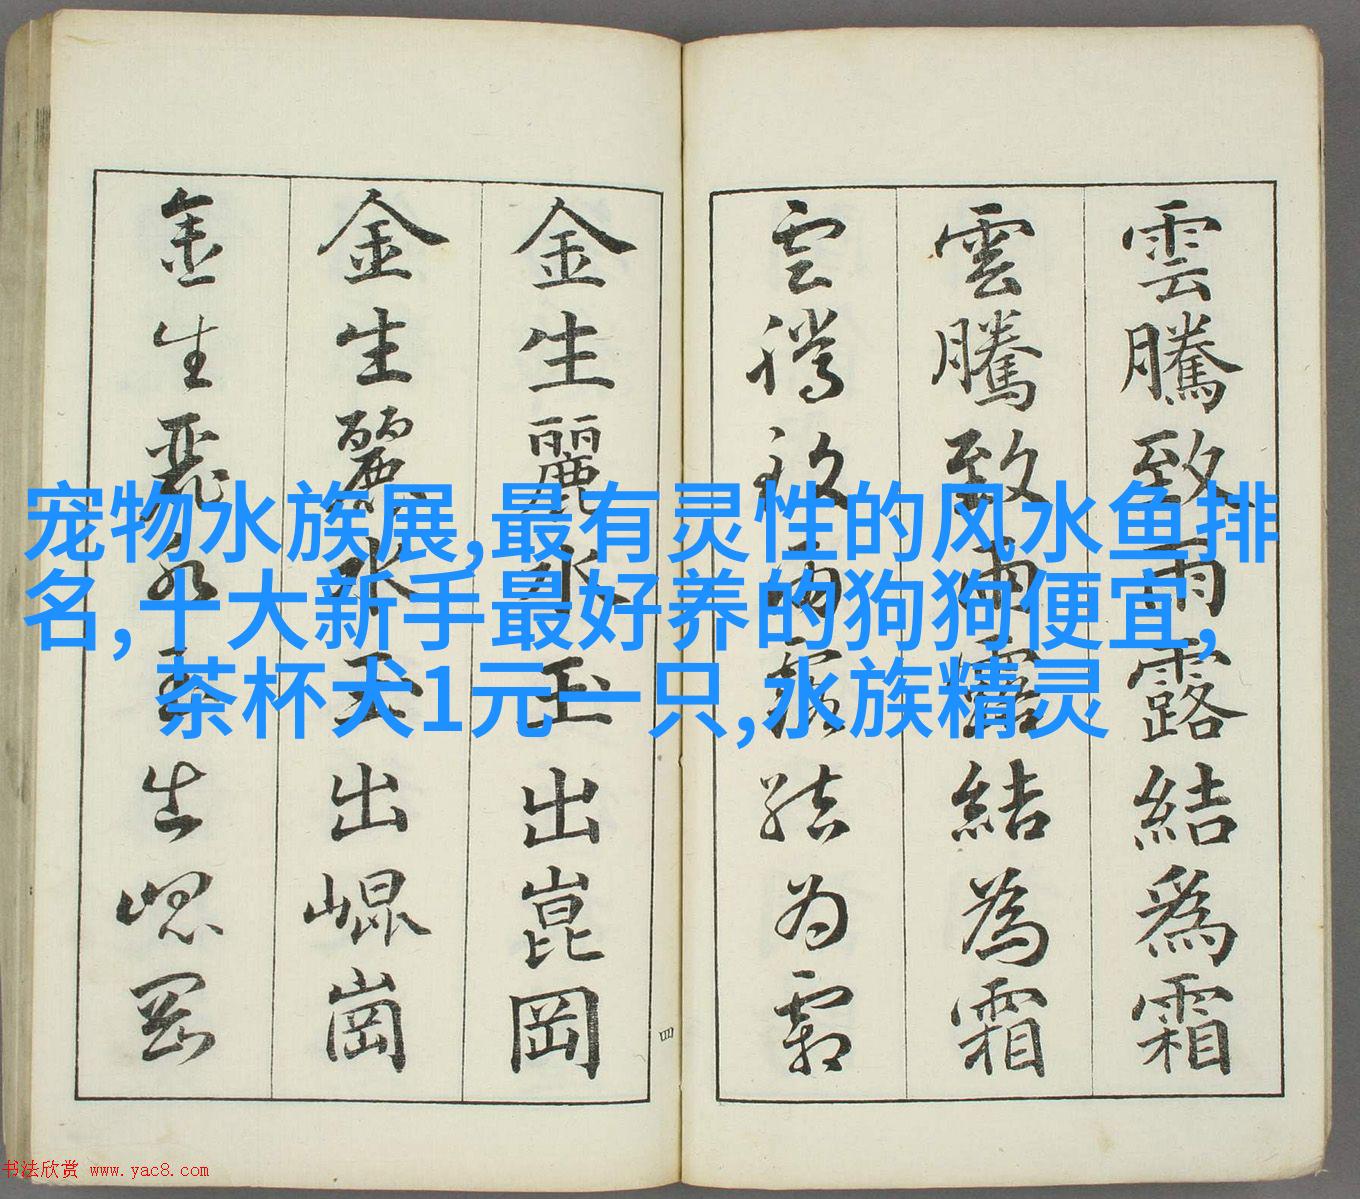 雲騰致雨露結爲霜
雲騰致雨露結為霜
雲騰致雨露結为霜
金生麗水玉出崑岡
金生麗水玉出崐崗
金生麗水玉出崐岡
四
宠物水族展,最有灵性的风水鱼排
名,十大新手最好养的狗狗便宜,
茶杯犬1元一只,水族精灵
书法欣赏 www.yac8.com